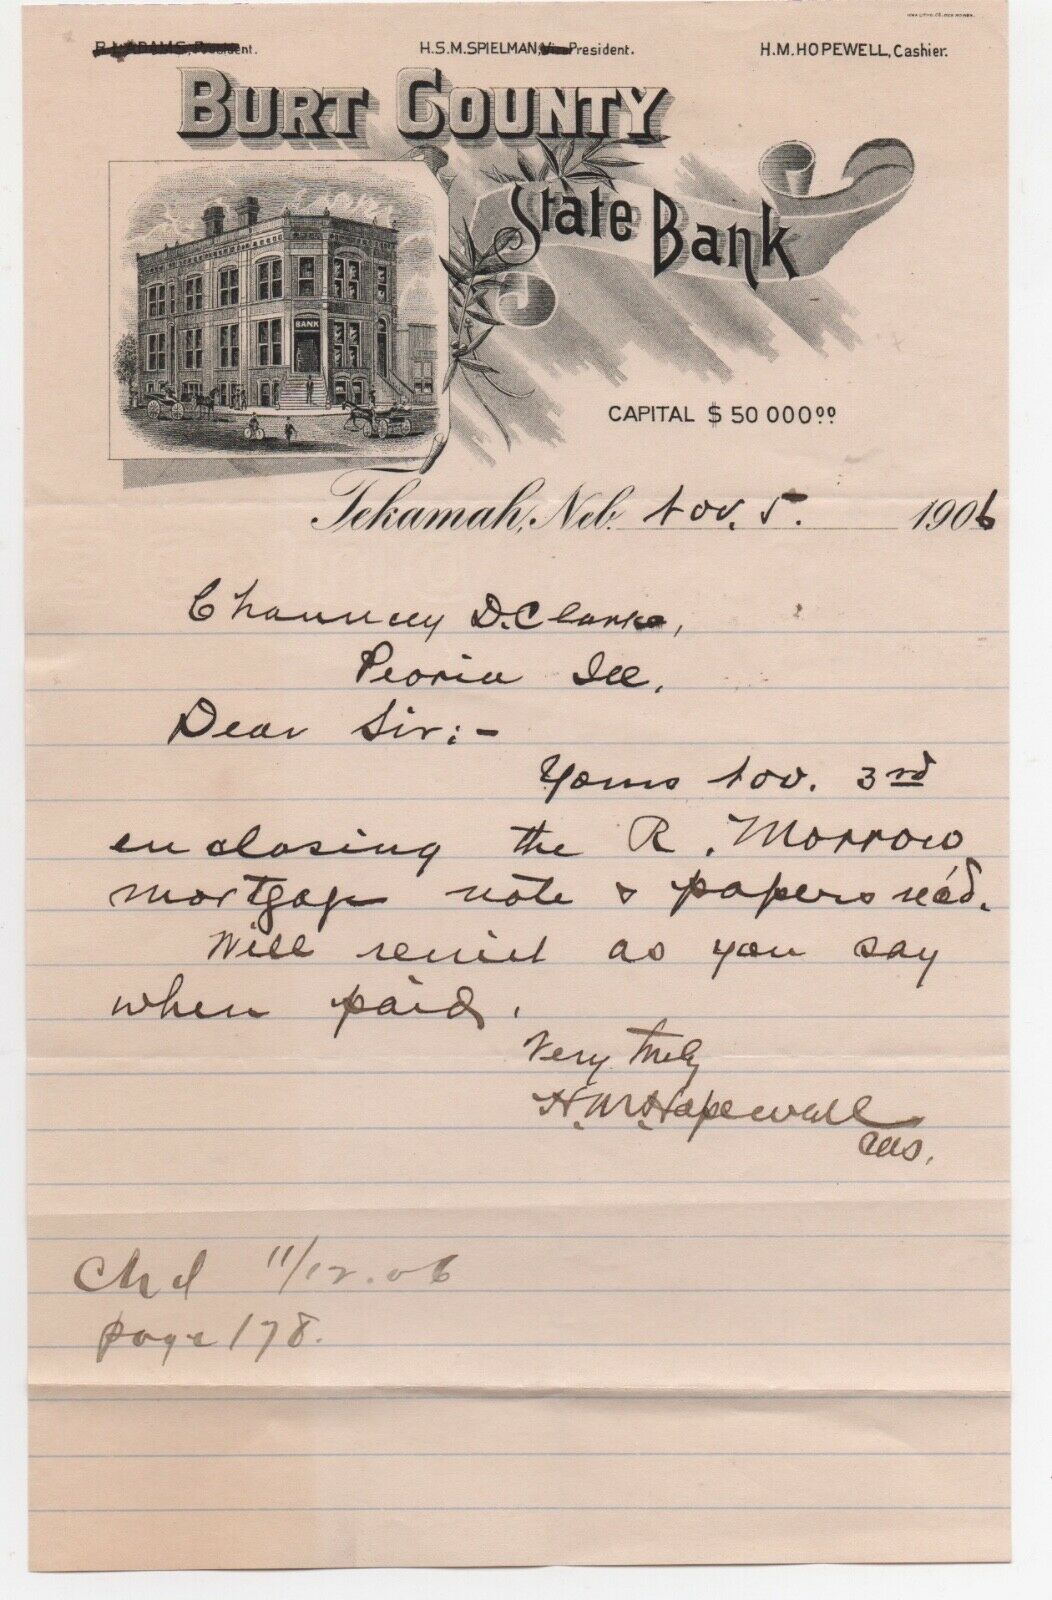 H.S.M. SPIELMAN, President.
H.M. HOPEWELL, Cashier.
BURT COUNTY
State Bank
BANK
CAPITAL $ 50 000 00
Tekamah, Neb. Nov. 5. 1906
Chauncey D. Clarke,
Peoria Ill.
Dear Sir:-
Yours Nov. 3rd
enclosing the R. Morrow
mortgage note & papers rec'd.
Will remit as you say
when paid.
Very truly
H.M. Hopewell
Cas.
11/12.06
page 178.